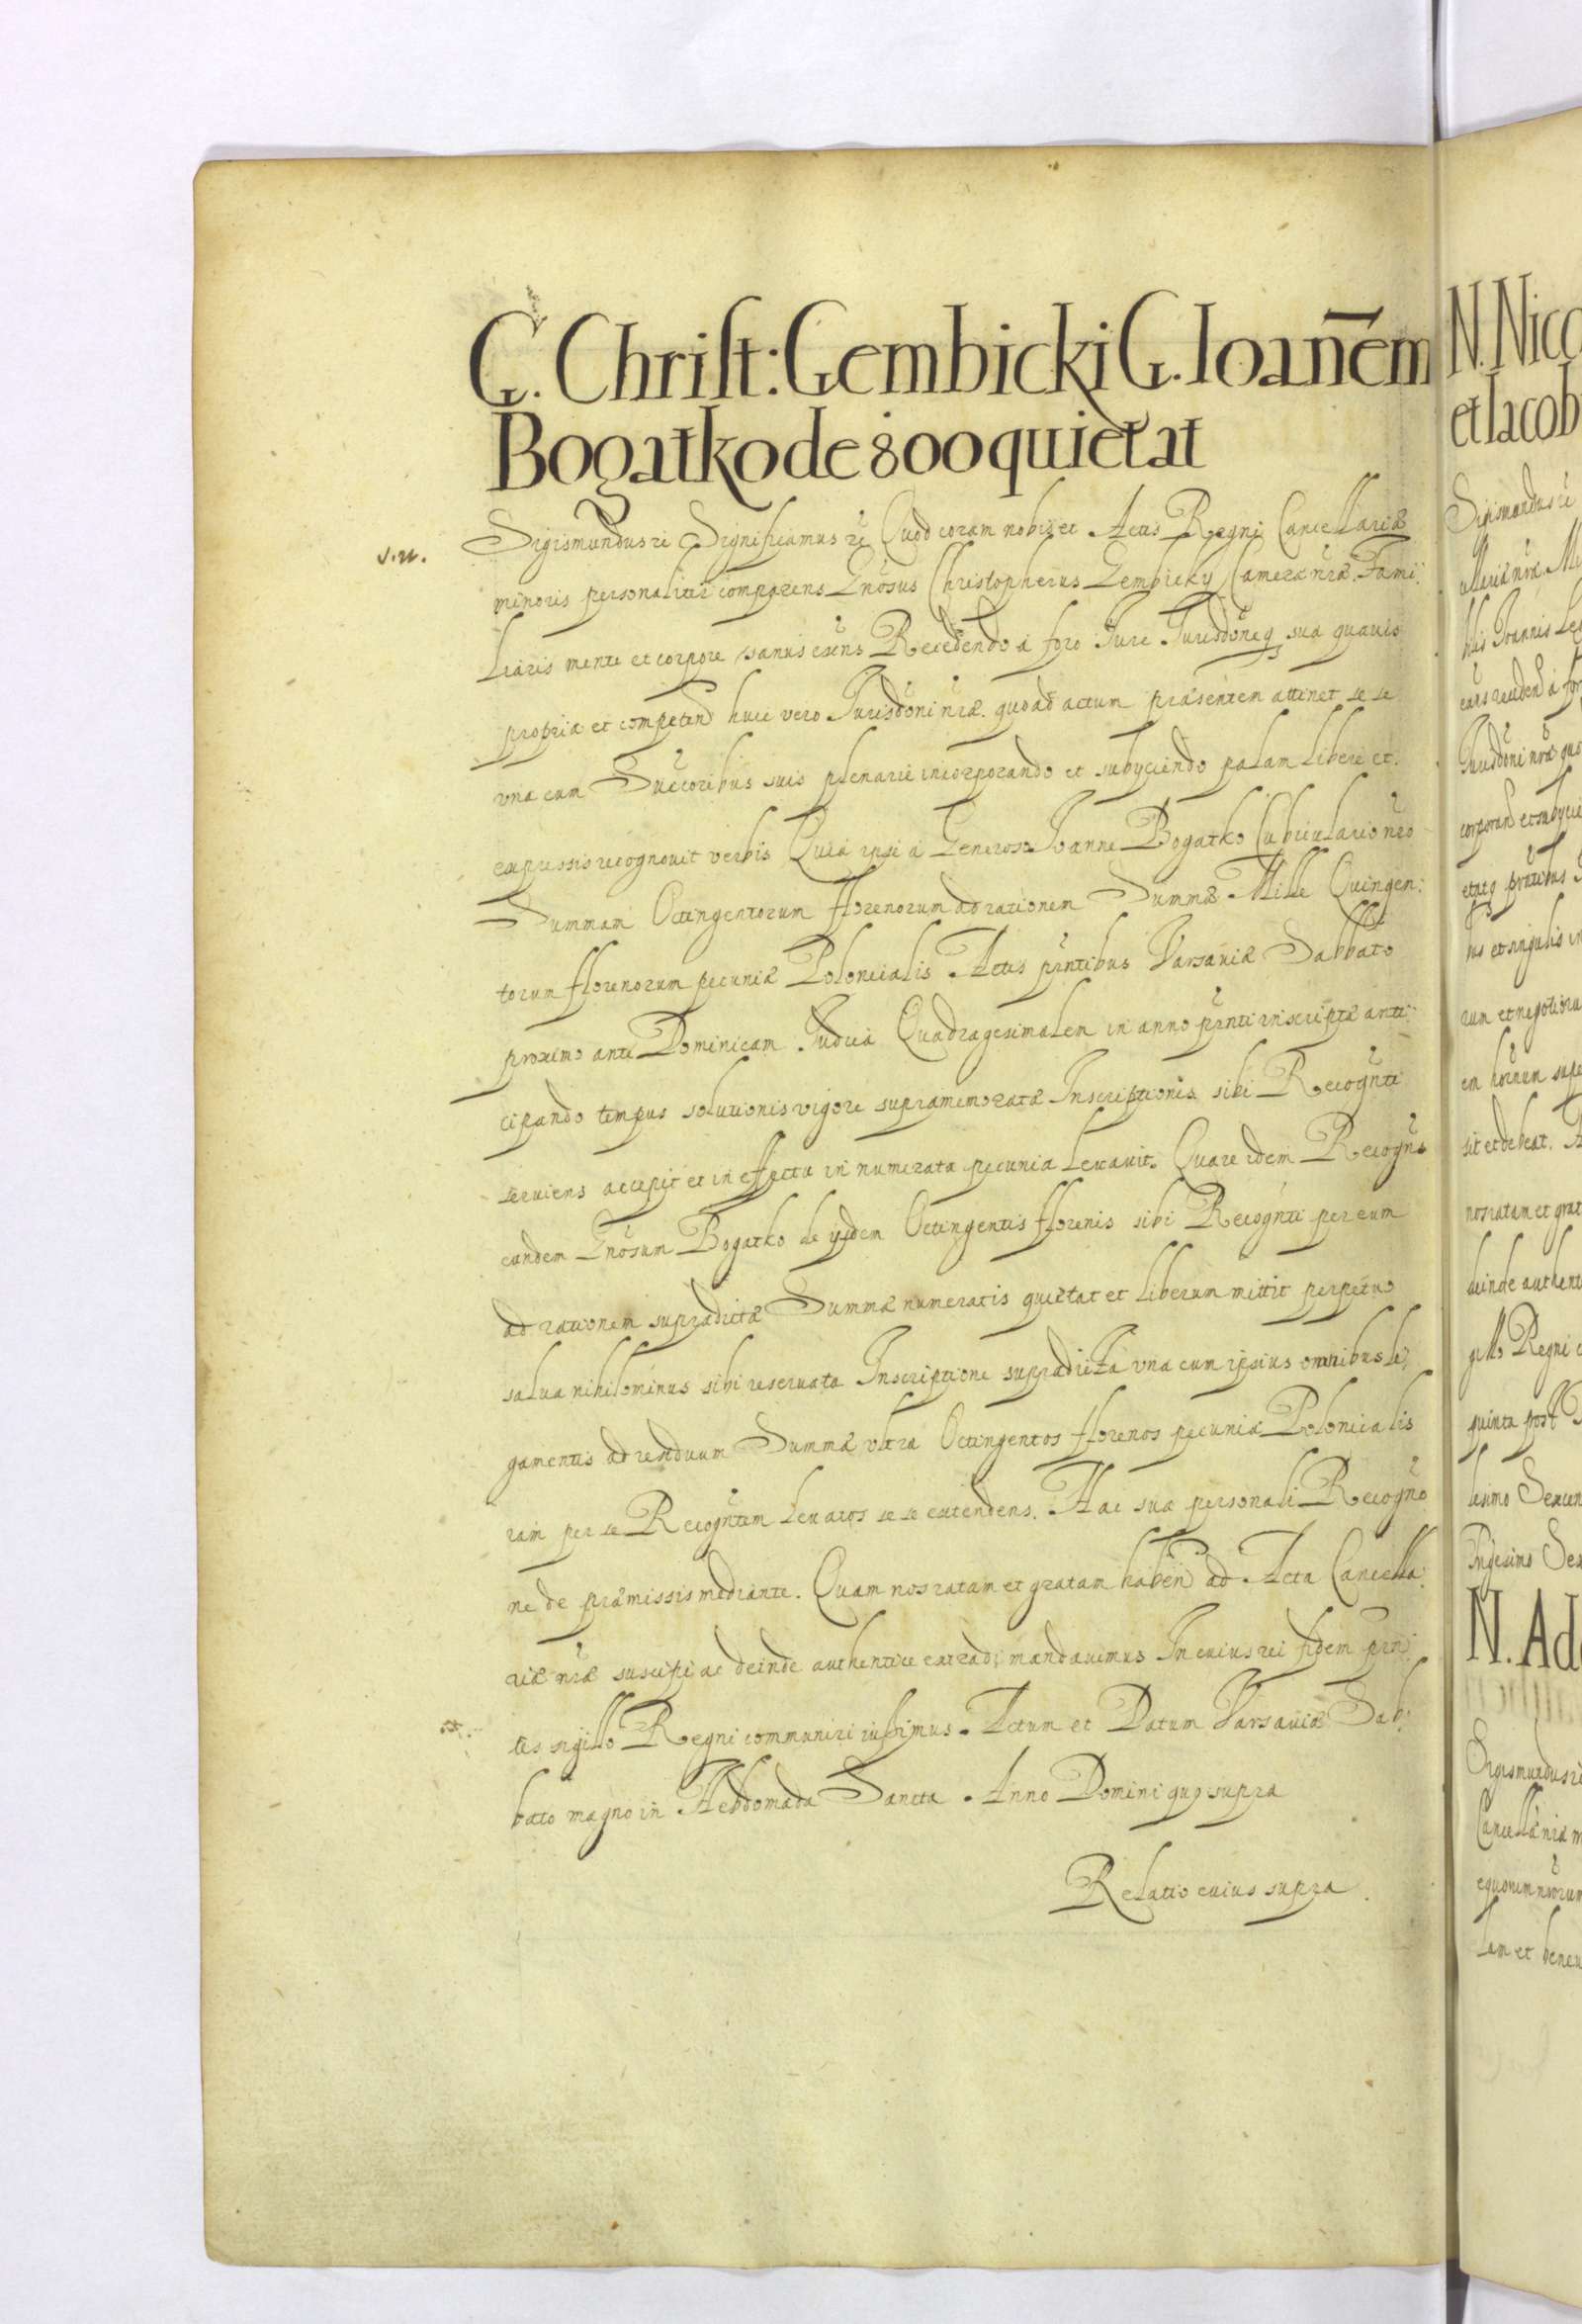 G. Christ: Gembicki G. Ioan̄em
Bogatko de 800 quietat
s.n.
Sigismundus &c̃ Significamus &c̃ Quod coram nobis et Actis Regni Cancellariæ
minoris personaliter comparens Gnõsus Christopherus Gembicky Cameræ nr̃æ Fami:
liaris mente et corpore sanus exiens Recedendo à foro Iure Iurisdõneq sua quavis
propria et competeñ huic vero Iurisdõni nr̃æ quoad actum præsentem attinet se se
vna cum Succoribus suis plenarie incorporando et subyciendo palam libere et
expressis recognouit verbis Quia ipsi à Generoso Ioanne Bogatko Cubiculario nr̃o
Summam Octingentorum florenorum ad rationem Summæ Mille Quingen:
torum florenorum pecuniæ Polonicalis Actis pr̃ntibus Varsauiæ Sabbato
proximo ante Dominicam Iudica Quadragesimalem in anno pr̃nti inscriptæ anti:
cipando tempus solutionis vigore supramemoratæ Inscriptionis sibi Recogñti
seruiens accepit et in effectu in numerata pecunia leuauit. Quare idem Recogñs
eundem Gnõsum Bogatko de ijsdem Octingentis florenis sibi Recogñti per eum
ad rationem supradictæ Summæ numeratis quietat et liberum mittit perpetuo
salua nihilominus sibi reseruata Inscriptione supradicta vna cum ipsius omnibus li:
gamentis ad residuum Summæ vltra Octingentos florenos pecuniæ Polonicalis
iam per se Recogñtem leuatos se se extendens. Hac sua personali Recogño
ne de præmissis mediante. Quam nos ratam et gratam habeñ ad Acta Cancella:
riæ nr̃æ suscipi ac deinde authentice extradi mandauimus In cuius rei fidem pr̃n:
tes sigillo Regni communiri iussimus. Actum et Datum Varsauiæ Sab:
bato magno in Hebdomada Sancta Anno Domini quo supra
Relatio cuius supra.
N. Nico
et Iacob
Sigismundus &c̃
bilis Ioannis
Iurisdõni nr̃æ quo
etatq pr̃ntibus
tus et singulis in
rum et negotioru
sit et debeat. A
nos ratam et grat
deinde authent
gillo Regni c
quinta post
N. Ad
Sigismundus &c̃
Cancella nr̃æ m
lem et bene